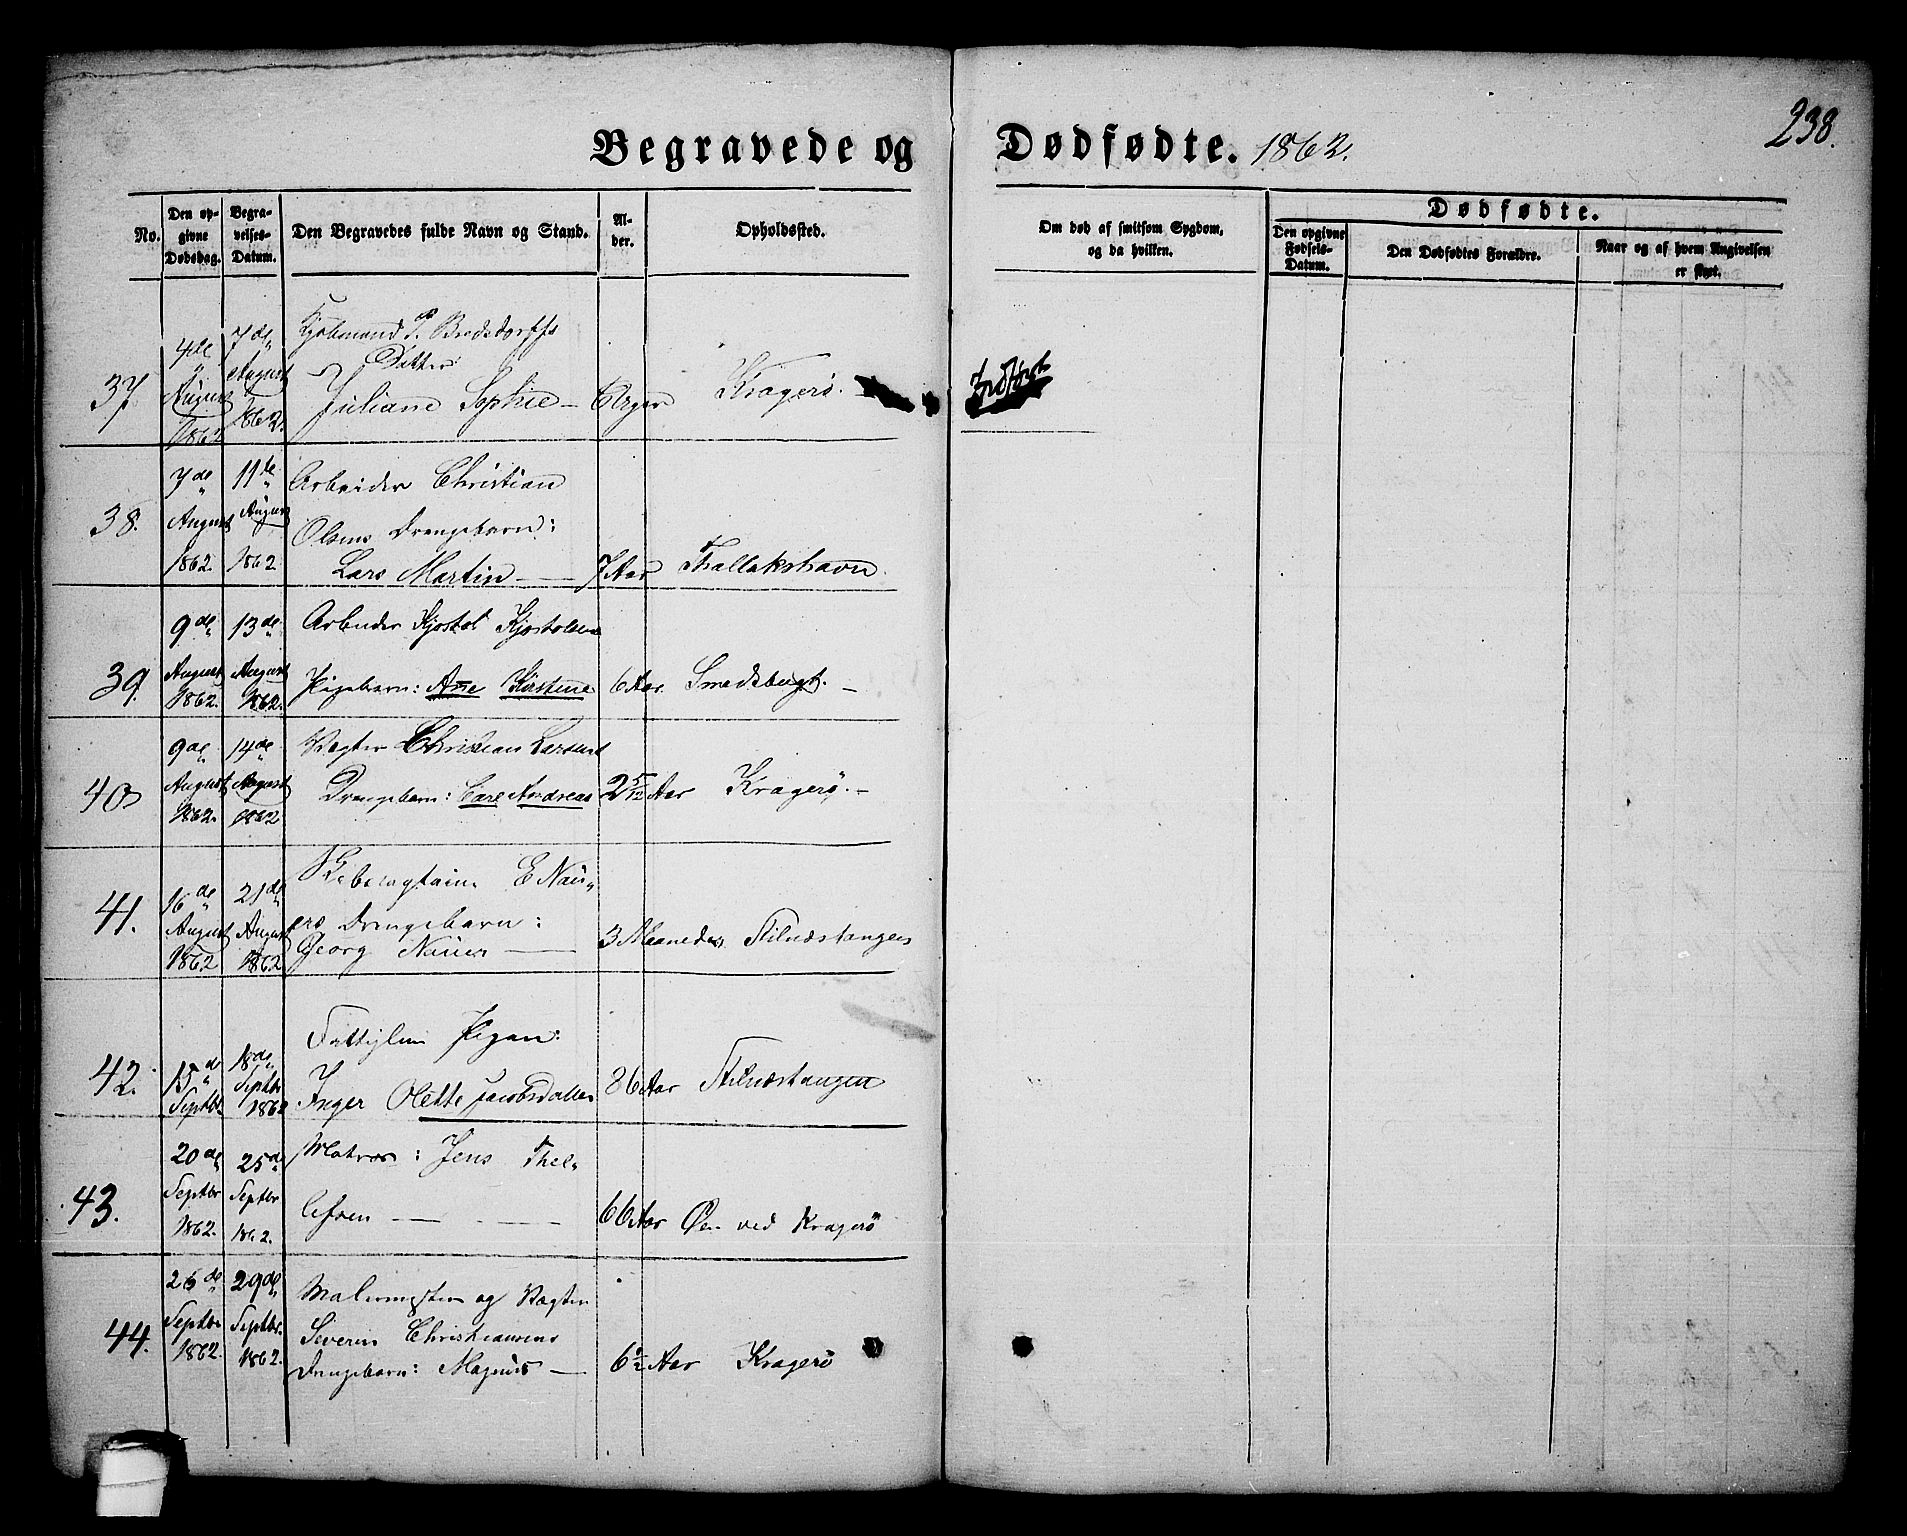 238.
Begravede og Dødfødte. 1862.
No.
Den op-
givne
Dødsdag.
Begra-
velses-
Datum.
Den Begravedes fulde Navn og Stand.
Al-
der.
Opholdssted.
Om død af smitsom Sygdom,
og da hvilken.
Dødfødte.
Den opgivne
Fødsels-
Datum.
Den Dødfødtes Forældre.
Naar og af hvem Angivelsen
er skeet.
37.
4de
August
1862
7de
August
1862.
Kjøbmand P. Bredsdorffs
Datter
Juliane Sophie —
Kragerø.
38.
7de
August
1862.
11te
August
1862
Arbeider Christian
Olsens Drengebarn:
Lars Martin —
7 Aar
Thallakshavn.
39.
9de
August
1862.
13de
August
1862.
Arbeider Kjøstol Kjøstolsens
Pigebarn: Ane Kirstine
6 Aar.
Smedsbugt. —
40
9de
August
1862.
14de
August
1862
Vægter Christian Larsens
Drengebarn: Carl Andreas
2 5/12 Aar
Kragerø. —
41.
16de
August
1862
21de
August
1862
Skibscaptain E Nau-
ers Drengebarn:
Georg Nauer —
3 Maaneder
Stilnæstangen
42.
15de
Septbr.
18de
Septbr
1862
Fattiglem Pigen:
Inger Olette Jacobsdatter
86 Aar
Stilnæstangen
43.
20de
Septbr
1862.
25de
Septbr
1862.
Matros: Jens Thel-
lefsen — —
66 Aar
Øen ved Kragerø
44.
26de
Septbr
1862.
29de
Septbr.
1862.
Malermester og Vægter
Severin Christiansens
Drengebarn: Magnus —
6 1/2 Aar
Kragerø